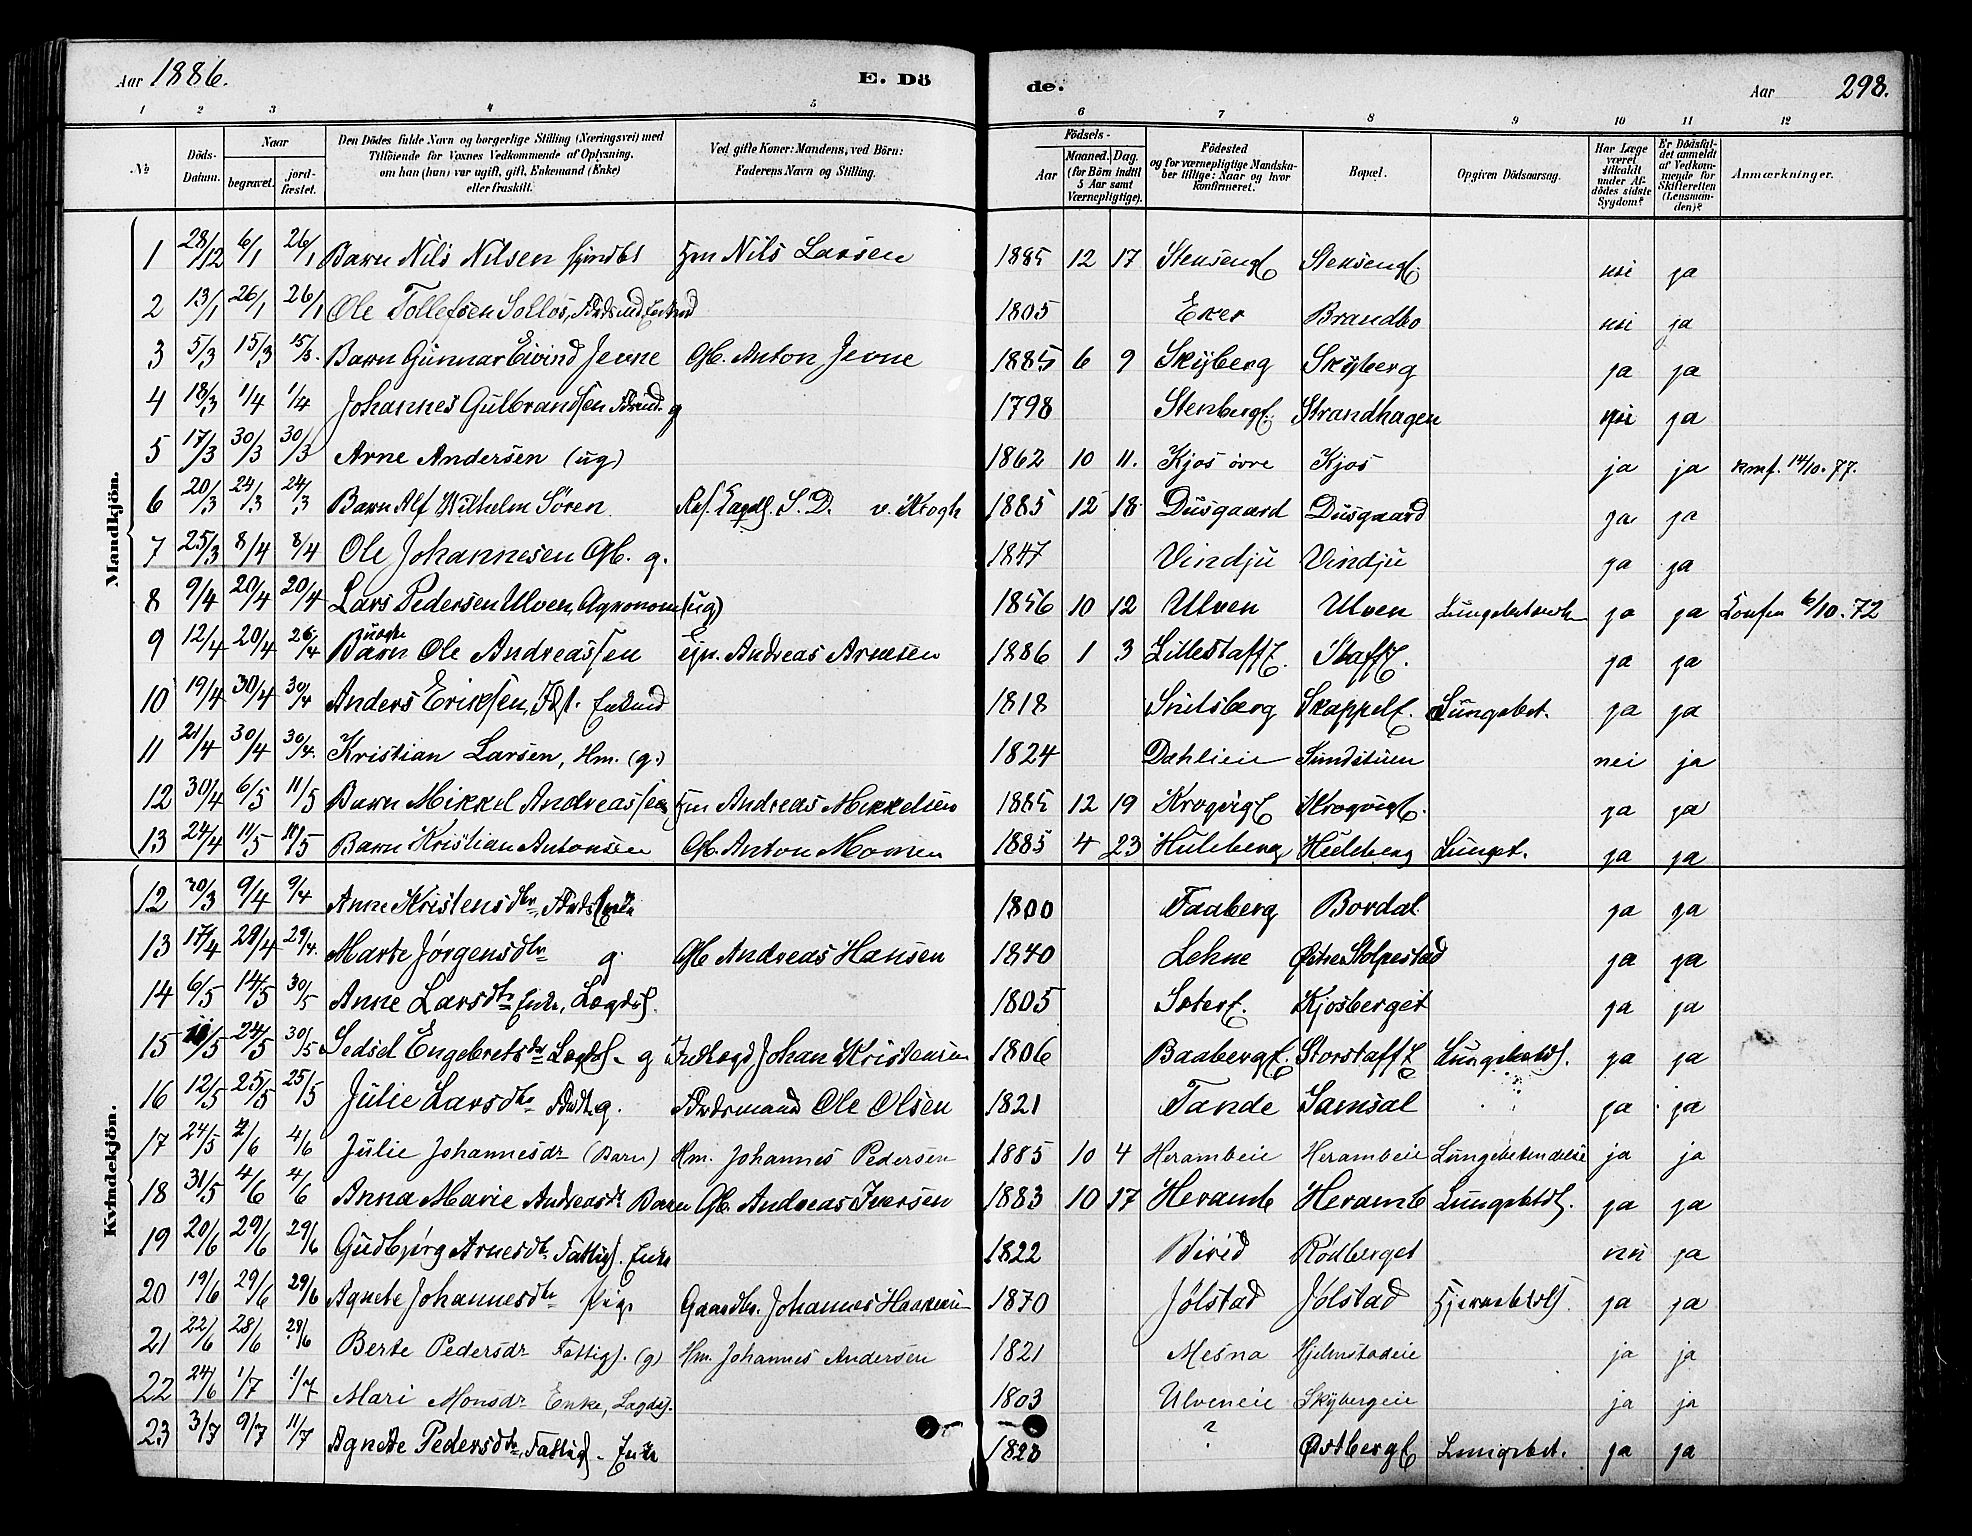 Aar 1886. E. Dö de. Aar 298.
1 2 3 4 5 6 7 8 9 10 11 12
No Döds-Datum. Naar begravet. jord-fæstet. Den Dödes fulde Navn og borgerlige Stilling (Næringsvei) med Tilföiende for Voxnes Vedkommende af Oplysning, om han (hun) var ugift, gift, Enkemand (Enke) eller fraskilt. Ved gifte Koner: Mandens, ved Börn: Faderens Navn og Stilling. Födsels- Aar Maaned. Dag. (for Börn indtil 5 Aar samt Værnepligtige). Födested og for værnepligtige Mandskaber tillige: Naar og hvor konfirmeret. Bopæl. Opgiven Dödsaarsag. Har Læge været tilkaldt under Afdödes sidste Sygdom? Er Dödsfaldet anmeldt af Vedkommende for Skifteretten (Lensmanden)? Anmærkninger.
Mandkjön.
1 28/12 6/1 26/1 Barn Nils Nilsen Hm Nils Larsen 1885 12 17 Stensengf Stensengf. nei ja
2 13/1 26/1 26/1 Ole Tollefsen Eker Brandbo 1805 nei ja
3 5/3 15/3 15/3. Barn Gunnar Eivind Jevne Gb. Anton Jevne 1885 6 9 Skyberg Skyberg ja ja
4 18/3 1/4 1/4 Johannes Gulbrandsen g 1798 Stenbergf. Strandhagen nei ja
5 17/3 30/3 30/3 Arne Andersen (ug) 1862 10 11. Kjos övre Kjos ja ja kmf. 14/10. 77.
6 20/3 24/3 24/3 Barn Alf Wilhelm Sören S. D. v. Krogh 1885 12 18 Dusgaard Dusgaard ja ja
7 25/3 8/4 8/4 Ole Johannesen Gb. g. 1847 Vindju Vindju ja ja
8 9/4 20/4 20/4 Lars Pedersen Ulven, Agronom (ug) 1856 10 12 Ulven Ulven ja ja Konfr 6/10. 72
9 12/4 20/4 26/4 uægte Barn Ole Andreassen Andreas Arnesen 1886 1 3 Lillestaff Staff ja ja
10 19/4 30/4 30/4 Anders Eriksen, Enkmd 1818 Snilsberg Skappelf. Lungebet. ja ja
11 21/4 30/4 30/4. Kristian Larsen, Hm. (g.) 1824 Dahlieie Sundstuen nei ja
12 30/4 6/5 11/5 Barn Mikkel Andreassen Hm Andreas Mikkelsen 1885 12 19 Krogvigf Krogvigf. ja ja
13 24/4 11/5 11/5 Barn Kristian Antonsen Gb. Anton Momen 1885 4 23 Huleberg Huleberg Lunget. ja ja
Kvindekjön.
12 30/3 9/4 9/4 Anne Kristensdtr, Enke 1800 Faaberg Bordal ja ja
13 17/4 29/4 29/4. Marte Jörgensdtr g Gb Andreas Hansen 1840 Lehne Östre Stolpestad ja ja
14 6/5 14/5 30/5 Anne Larsdtr Enke, Lægds. 1805 Seterf. Kjosberget ja ja
15 11/5 24/5 30/5 Sedsel Engebretsdtr Lægds. g Indlægd. Johan Kristensen 1806 Baabergf. Storstaff ja ja
16 12/5 25/5 25/5 Julie Larsdtr g. Ole Olsen 1821 Tande Samsal " ja ja
17 24/5 4/6 4/6 Julie Johannesdr (Barn) Hm. Johannes Pedersen 1885 10 4 Herambeie Herambeie Lungebetændelse ja ja
18 31/5 4/6 4/6 Anna Marie Andreasdtr Barn Gb. Andreas Iversen 1883 10 17 Heramb Heramb ja ja
19 20/6 29/6 29/6 Gudbjörg Arnesdtr Fattigs. Enke 1822 Birid Rödberget nei ja
20 19/6 29/6 29/6 Agnete Johannesdtr Pige Gaardbr. Johannes Haakensen 1870 Jölstad Jölstad ja ja
21 22/6 28/6 29/6 Berte Pedersdr Fattigs. (g) Hm. Johannes Andersen 1821 Mesna Hjelmstadeie ja ja
22 24/6 1/7 1/7 Mari Monsdr Enke, Lægds. 1803 Ulveneie Skybergeie ja ja
23 3/7 9/7 11/7 Agnete Pedersdtr, Fattigs. Enke 1820 ? Östbergf Lungebet. ja ja